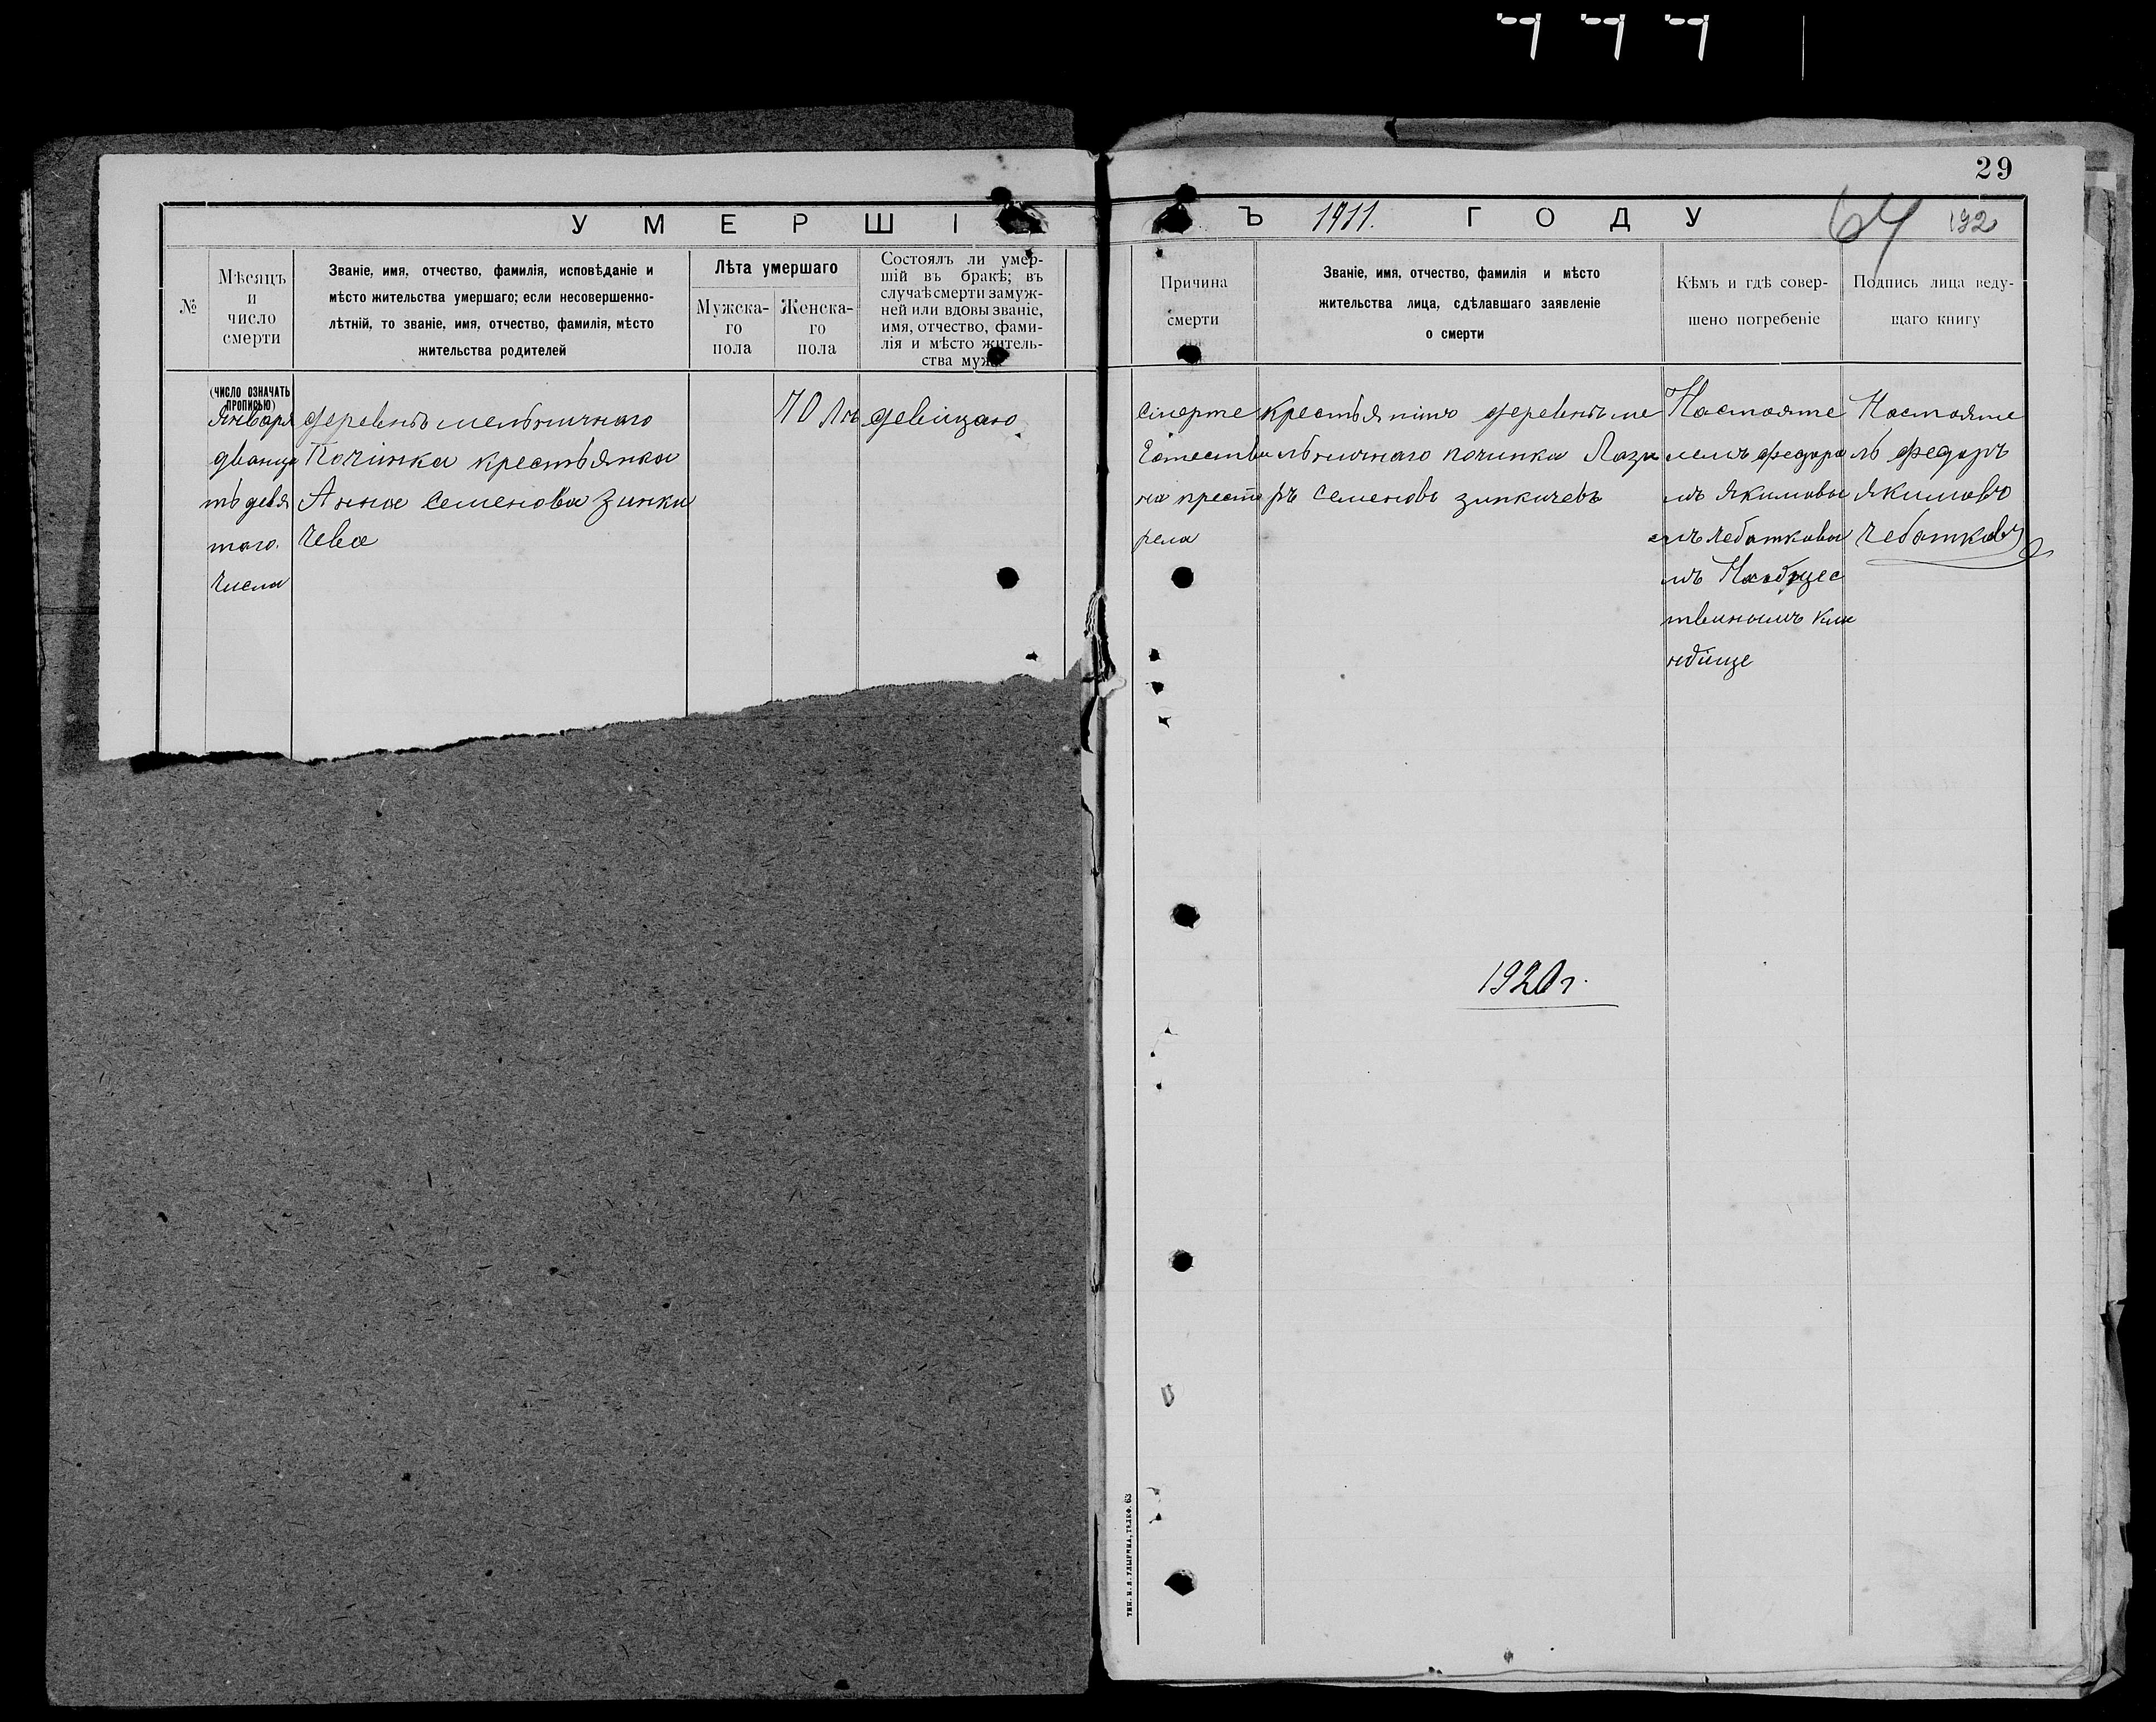 29
УМЕРШІ Ъ 1911. ГОДУ
64 192
№
Мѣсяцъ
и
число
смерти
Званіе, имя, отчество, фамилія, исповѣданіе и
мѣсто жительства умершаго; если несовершенно-
лѣтній, то званіе, имя, отчество, фамилія, мѣсто
жительства родителей
Лѣта умершаго
Мужска-
го
пола
Женска-
го
пола
Состоялъ ли умер-
шій въ бракѣ; въ
случаѣ смерти замуж-
ней или вдовы званіе,
имя, отчество, фами-
лія и мѣсто житель-
ства мужа
Причина
смерти
Званіе, имя, отчество, фамилія и мѣсто
жительства лица, сдѣлавшаго заявленіе
о смерти
Кѣмъ и гдѣ совер-
шено погребеніе
Подпись лица веду-
щаго книгу
(число означать
прописью)
Января
дванца
ть девя
таго.
числа
деревнѣ мельничнаго
Починка крестьянка
Анна Семенова Зинки
чева
70 лѣ
девицаю
Смерте
Естестве
на преста
рела
Крестьянино деревнѣ ме
льничнаго починка Лаза
ръ Семеновъ зинкичевъ
Настояте
лемъ федоро
мъ Якимовы
мъ Чеботковы
мъ На общес
твиномъ кла
нбище
Настояте
ль федоръ
Якимово
Чеботковъ
1920 г.
ТИП. И. Я. УДЫРИНА, ТЕЛЕФ. 63